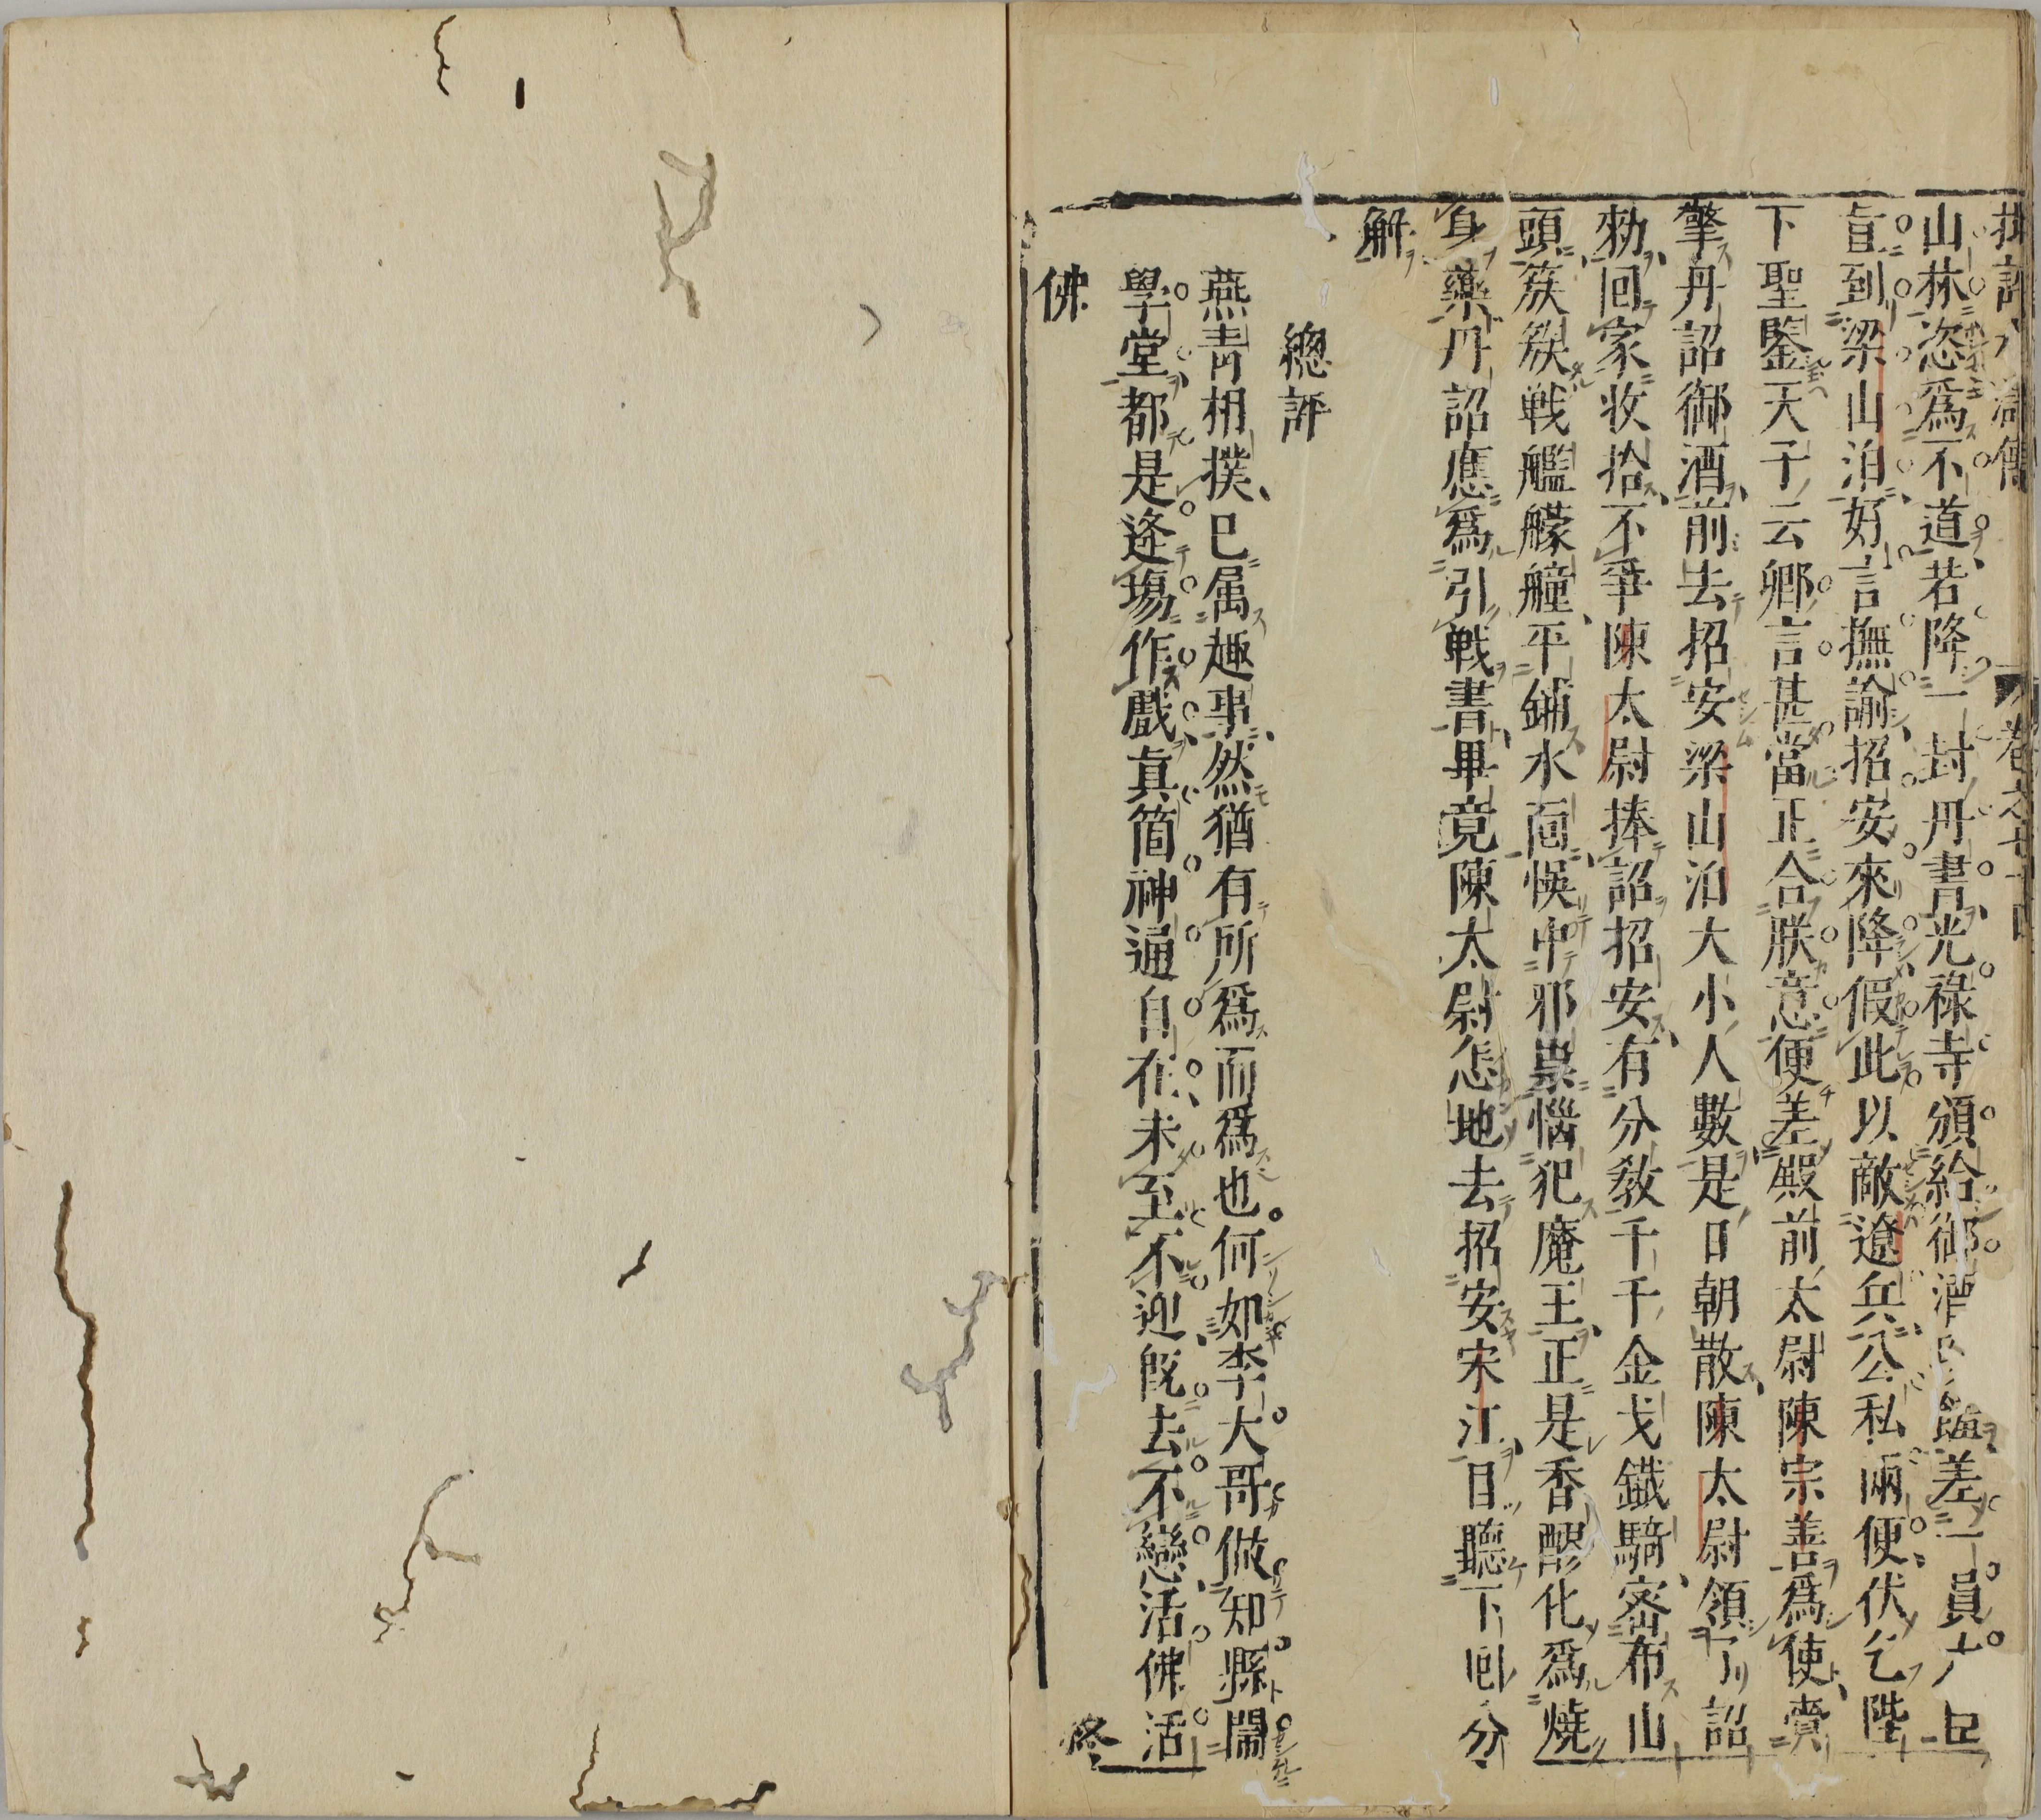 批評水滸傳 卷之七十四
山林恣爲不道若降一封丹書光祿寺頒給御酒 臨差一員大臣
直到梁山泊好言撫諭招安來降假此以敵遼兵公私兩便伏乞陛
下聖鑒天子云卿言甚當正合朕意便差殿前太尉陳宗善爲使賫
擎丹詔御酒前去招安梁山泊大小人數是日朝散陳太尉領了詔
勅回家收拾不爭陳太尉捧詔招安有分教千千金戈鐵騎密布山
頭簇簇戰艦艨艟平鋪水面悞中邪祟惱犯魔王正是香醪化爲燒
身藥丹詔應爲引戰書畢竟陳太尉怎地去招安宋江且聽下回分
觧
總評
燕青相撲、已属趣事、然猶有所爲而爲也。何如李大哥做知縣鬧
學堂都是逢塲作戲、眞箇神通自在、未至不迎、旣去不戀、活佛活
佛
終